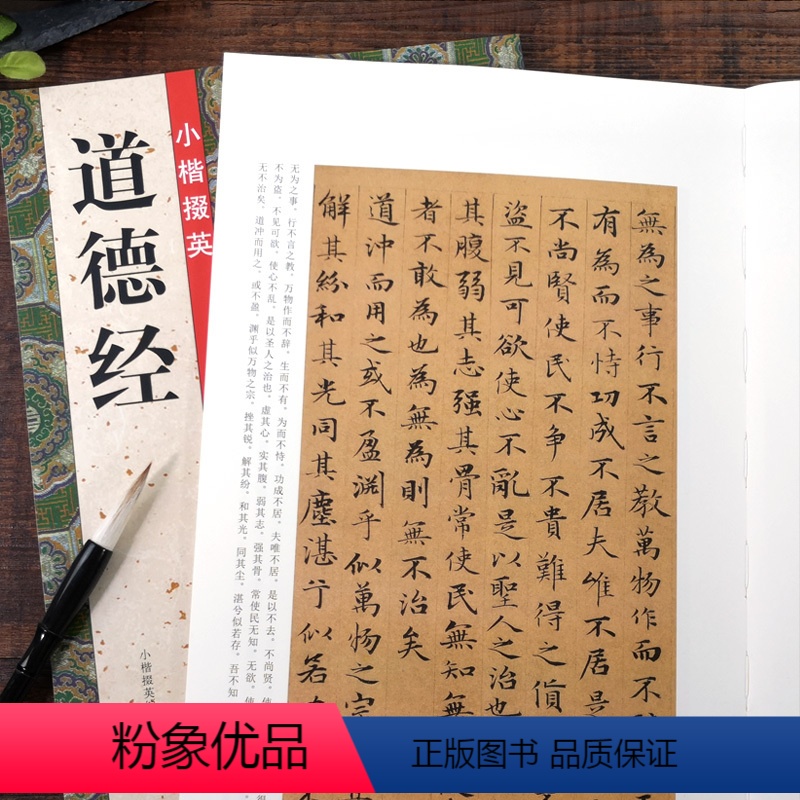 道德经
小楷掇英
小楷掇英
無為之事行不言之教萬物作而不
有為而不恃功成不居夫唯不居是
不尚賢使民不争不貴難得之貨
盗不見可欲使心不亂是以聖人之治也
其腹弱其志强其骨常使民無知無
者不敢為也為無為則無不治矣
道沖而用之或不盈淵乎似萬物之宗
解其紛和其光同其塵湛兮似若
无为之事。行不言之教。万物作而不辞。生而不有。为而不恃。功成不居。夫唯不居。是以不去。不尚贤。使
不为盗。不见可欲。使心不乱。是以圣人之治也。虚其心。实其腹。弱其志。强其骨。常使民无知。无欲。使
无不治矣。道冲而用之。或不盈。渊乎似万物之宗。挫其锐。解其纷。和其光。同其尘。湛兮似若存。吾不知
粉象优品
正版图书 品质保证